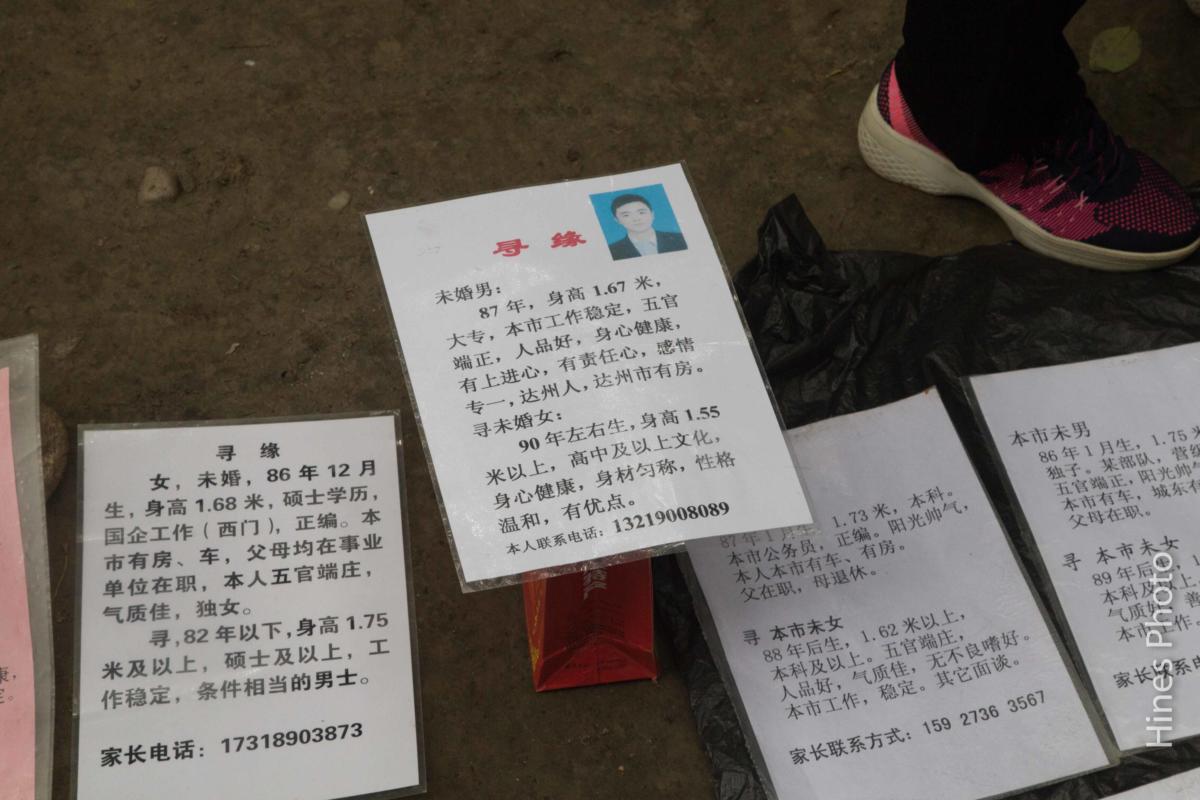 寻 缘
女，未婚，86 年 12 月
生，身高 1.68 米，硕士学历，
国企工作（西门），正编。本
市有房、车，父母均在事业
单位在职，本人五官端庄，
气质佳，独女。
寻,82 年以下,身高 1.75
米及以上，硕士及以上，工
作稳定，条件相当的男士。
家长电话：17318903873
寻 缘
未婚男：
87 年，身高 1.67 米，
大专，本市工作稳定，五官
端正，人品好，身心健康，
有上进心，有责任心，感情
专一,达州人,达州市有房。
寻未婚女：
90 年左右生,身高 1.55
米以上，高中及以上文化，
身心健康，身材匀称，性格
温和，有优点。
本人联系电话：13219008089
87年 1月 1.73 米，本科。
本市公务员，正编。阳光帅气，
本人本市有车、有房。
父在职，母退休。
寻 本市未女
88 年后生，1.62 米以上，
本科及以上。五官端庄，
人品好，气质佳，无不良嗜好。
本市工作，稳定。其它面谈。
家长联系方式：159 2736 3567
本市未男
86 年 1 月生，1.75 米
独子。某部队，营级
五官端正，阳光帅
本市有车，城东有
父母在职。
寻 本市未女
89 年后
本科及以上
气质好
本市工作。
家长联系电
康，
定。
Hines Photo